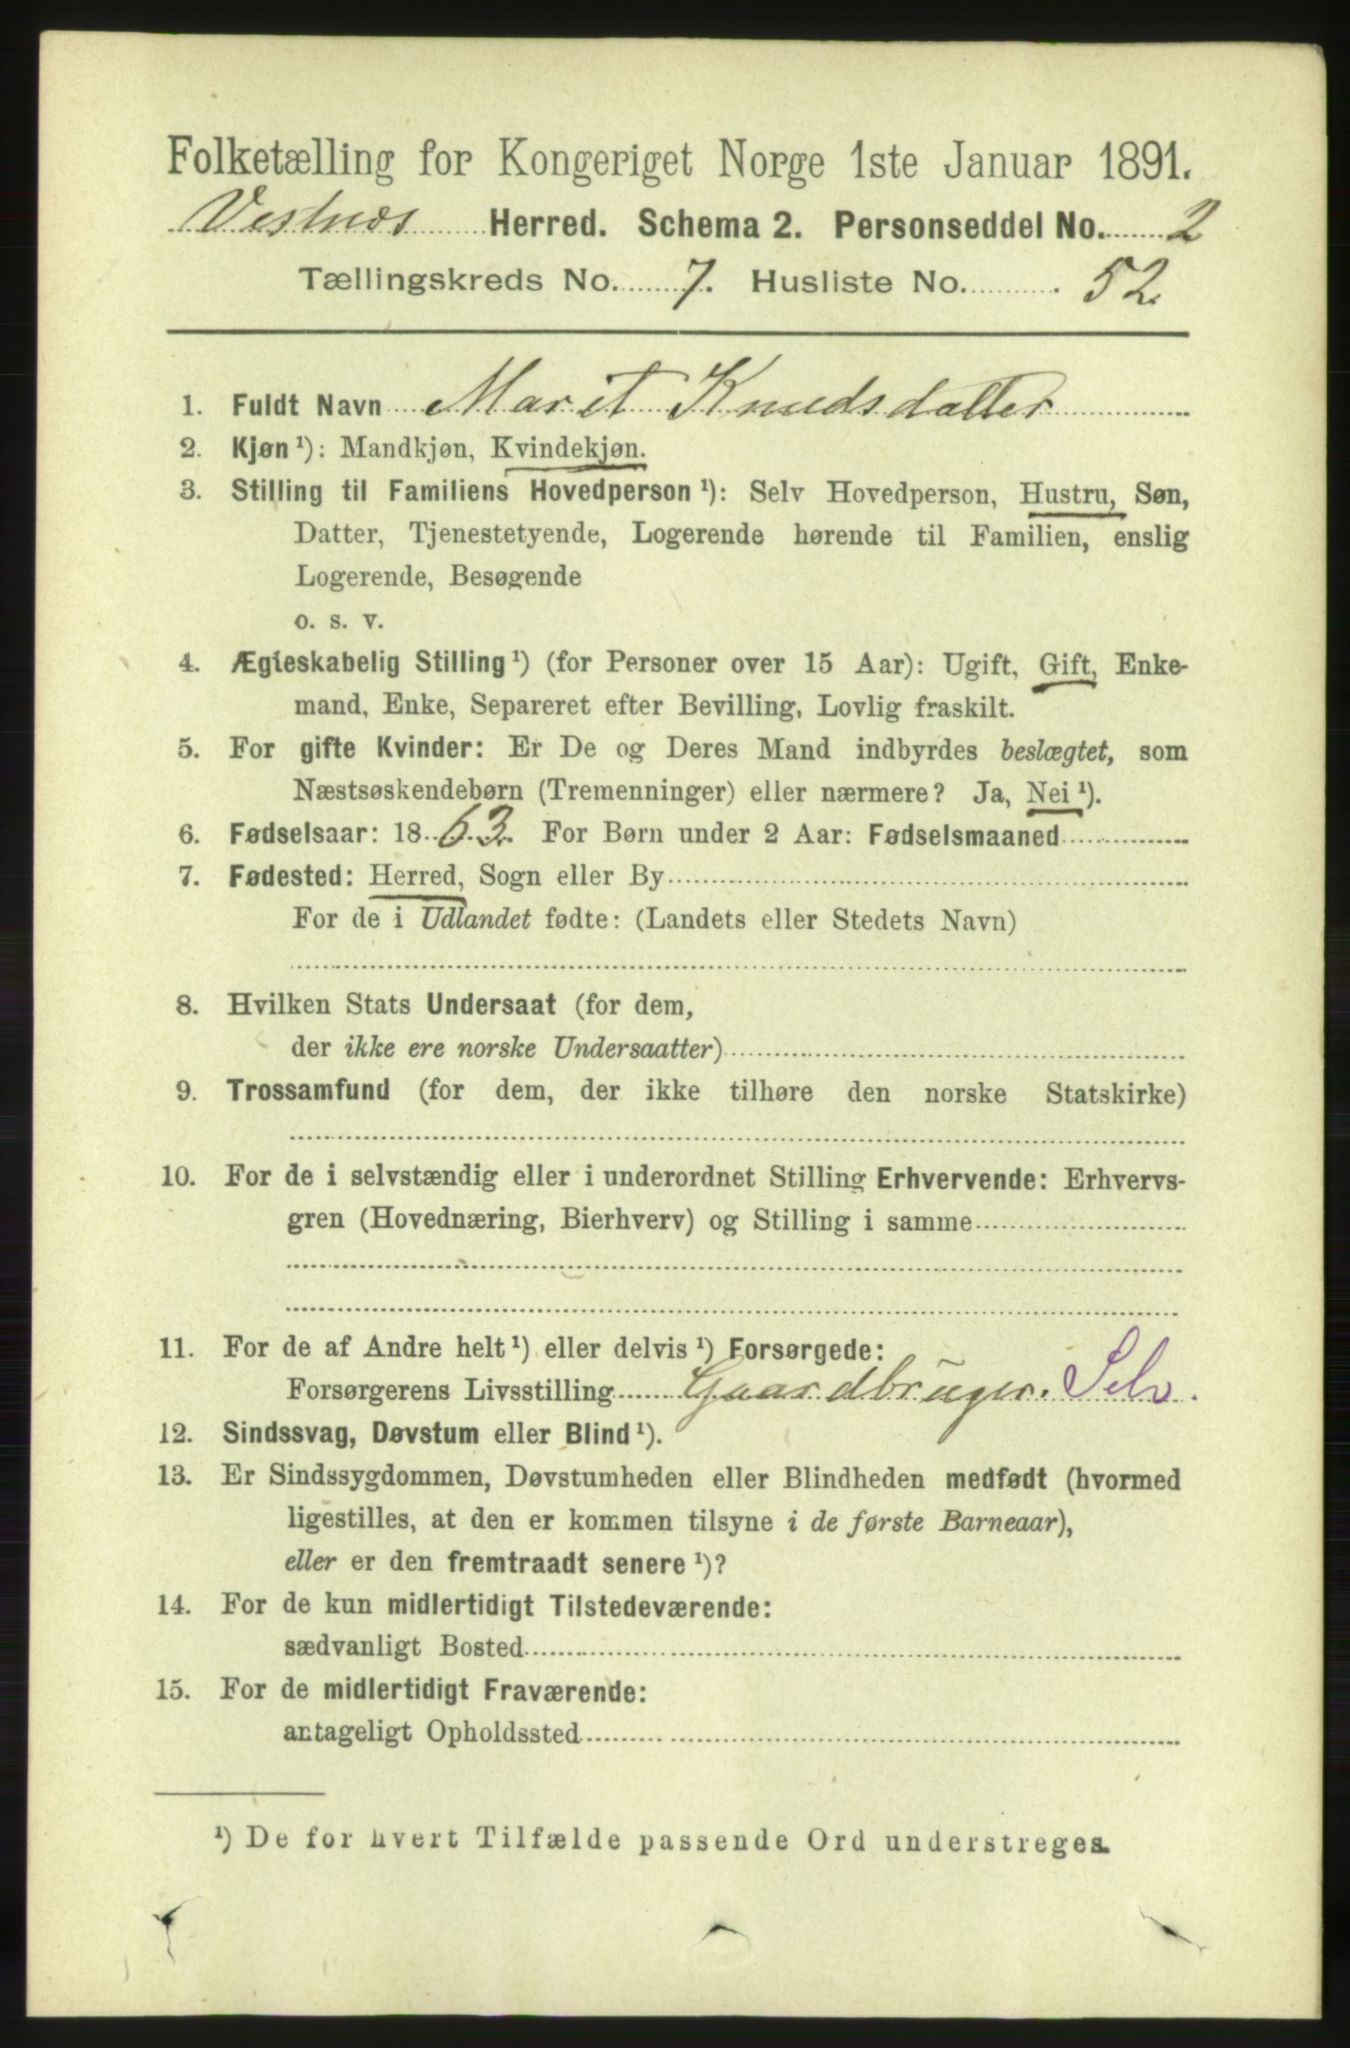 Folketælling for Kongeriget Norge 1ste Januar 1891.
Vestnæs Herred. Schema 2. Personseddel No. 2
Tællingskreds No. 7. Husliste No. 52
1. Fuldt Navn Marit Knudsdatter
2. Kjøn ¹): Mandkjøn, Kvindekjøn.
3. Stilling til Familiens Hovedperson ¹): Selv Hovedperson, Hustru, Søn,
Datter, Tjenestetyende, Logerende hørende til Familien, enslig
Logerende, Besøgende
o. s. v.
4. Ægteskabelig Stilling ¹) (for Personer over 15 Aar): Ugift, Gift, Enke-
mand, Enke, Separeret efter Bevilling, Lovlig fraskilt.
5. For gifte Kvinder: Er De og Deres Mand indbyrdes beslægtet, som
Næstsøskendebørn (Tremenninger) eller nærmere? Ja, Nei ¹).
6. Fødselsaar: 1863. For Børn under 2 Aar: Fødselsmaaned
7. Fødested: Herred, Sogn eller By
For de i Udlandet fødte: (Landets eller Stedets Navn)
8. Hvilken Stats Undersaat (for dem,
der ikke ere norske Undersaatter)
9. Trossamfund (for dem, der ikke tilhøre den norske Statskirke)
10. For de i selvstændig eller i underordnet Stilling Erhvervende: Erhvervs-
gren (Hovednæring, Bierhverv) og Stilling i samme
11. For de af Andre helt ¹) eller delvis ¹) Forsørgede:
Forsørgerens Livsstilling Gaardbruger. Selv.
12. Sindssvag, Døvstum eller Blind ¹).
13. Er Sindssygdommen, Døvstumheden eller Blindheden medfødt (hvormed
ligestilles, at den er kommen tilsyne i de første Barneaar),
eller er den fremtraadt senere ¹)?
14. For de kun midlertidigt Tilstedeværende:
sædvanligt Bosted
15. For de midlertidigt Fraværende:
antageligt Opholdssted
¹) De for hvert Tilfælde passende Ord understreges.